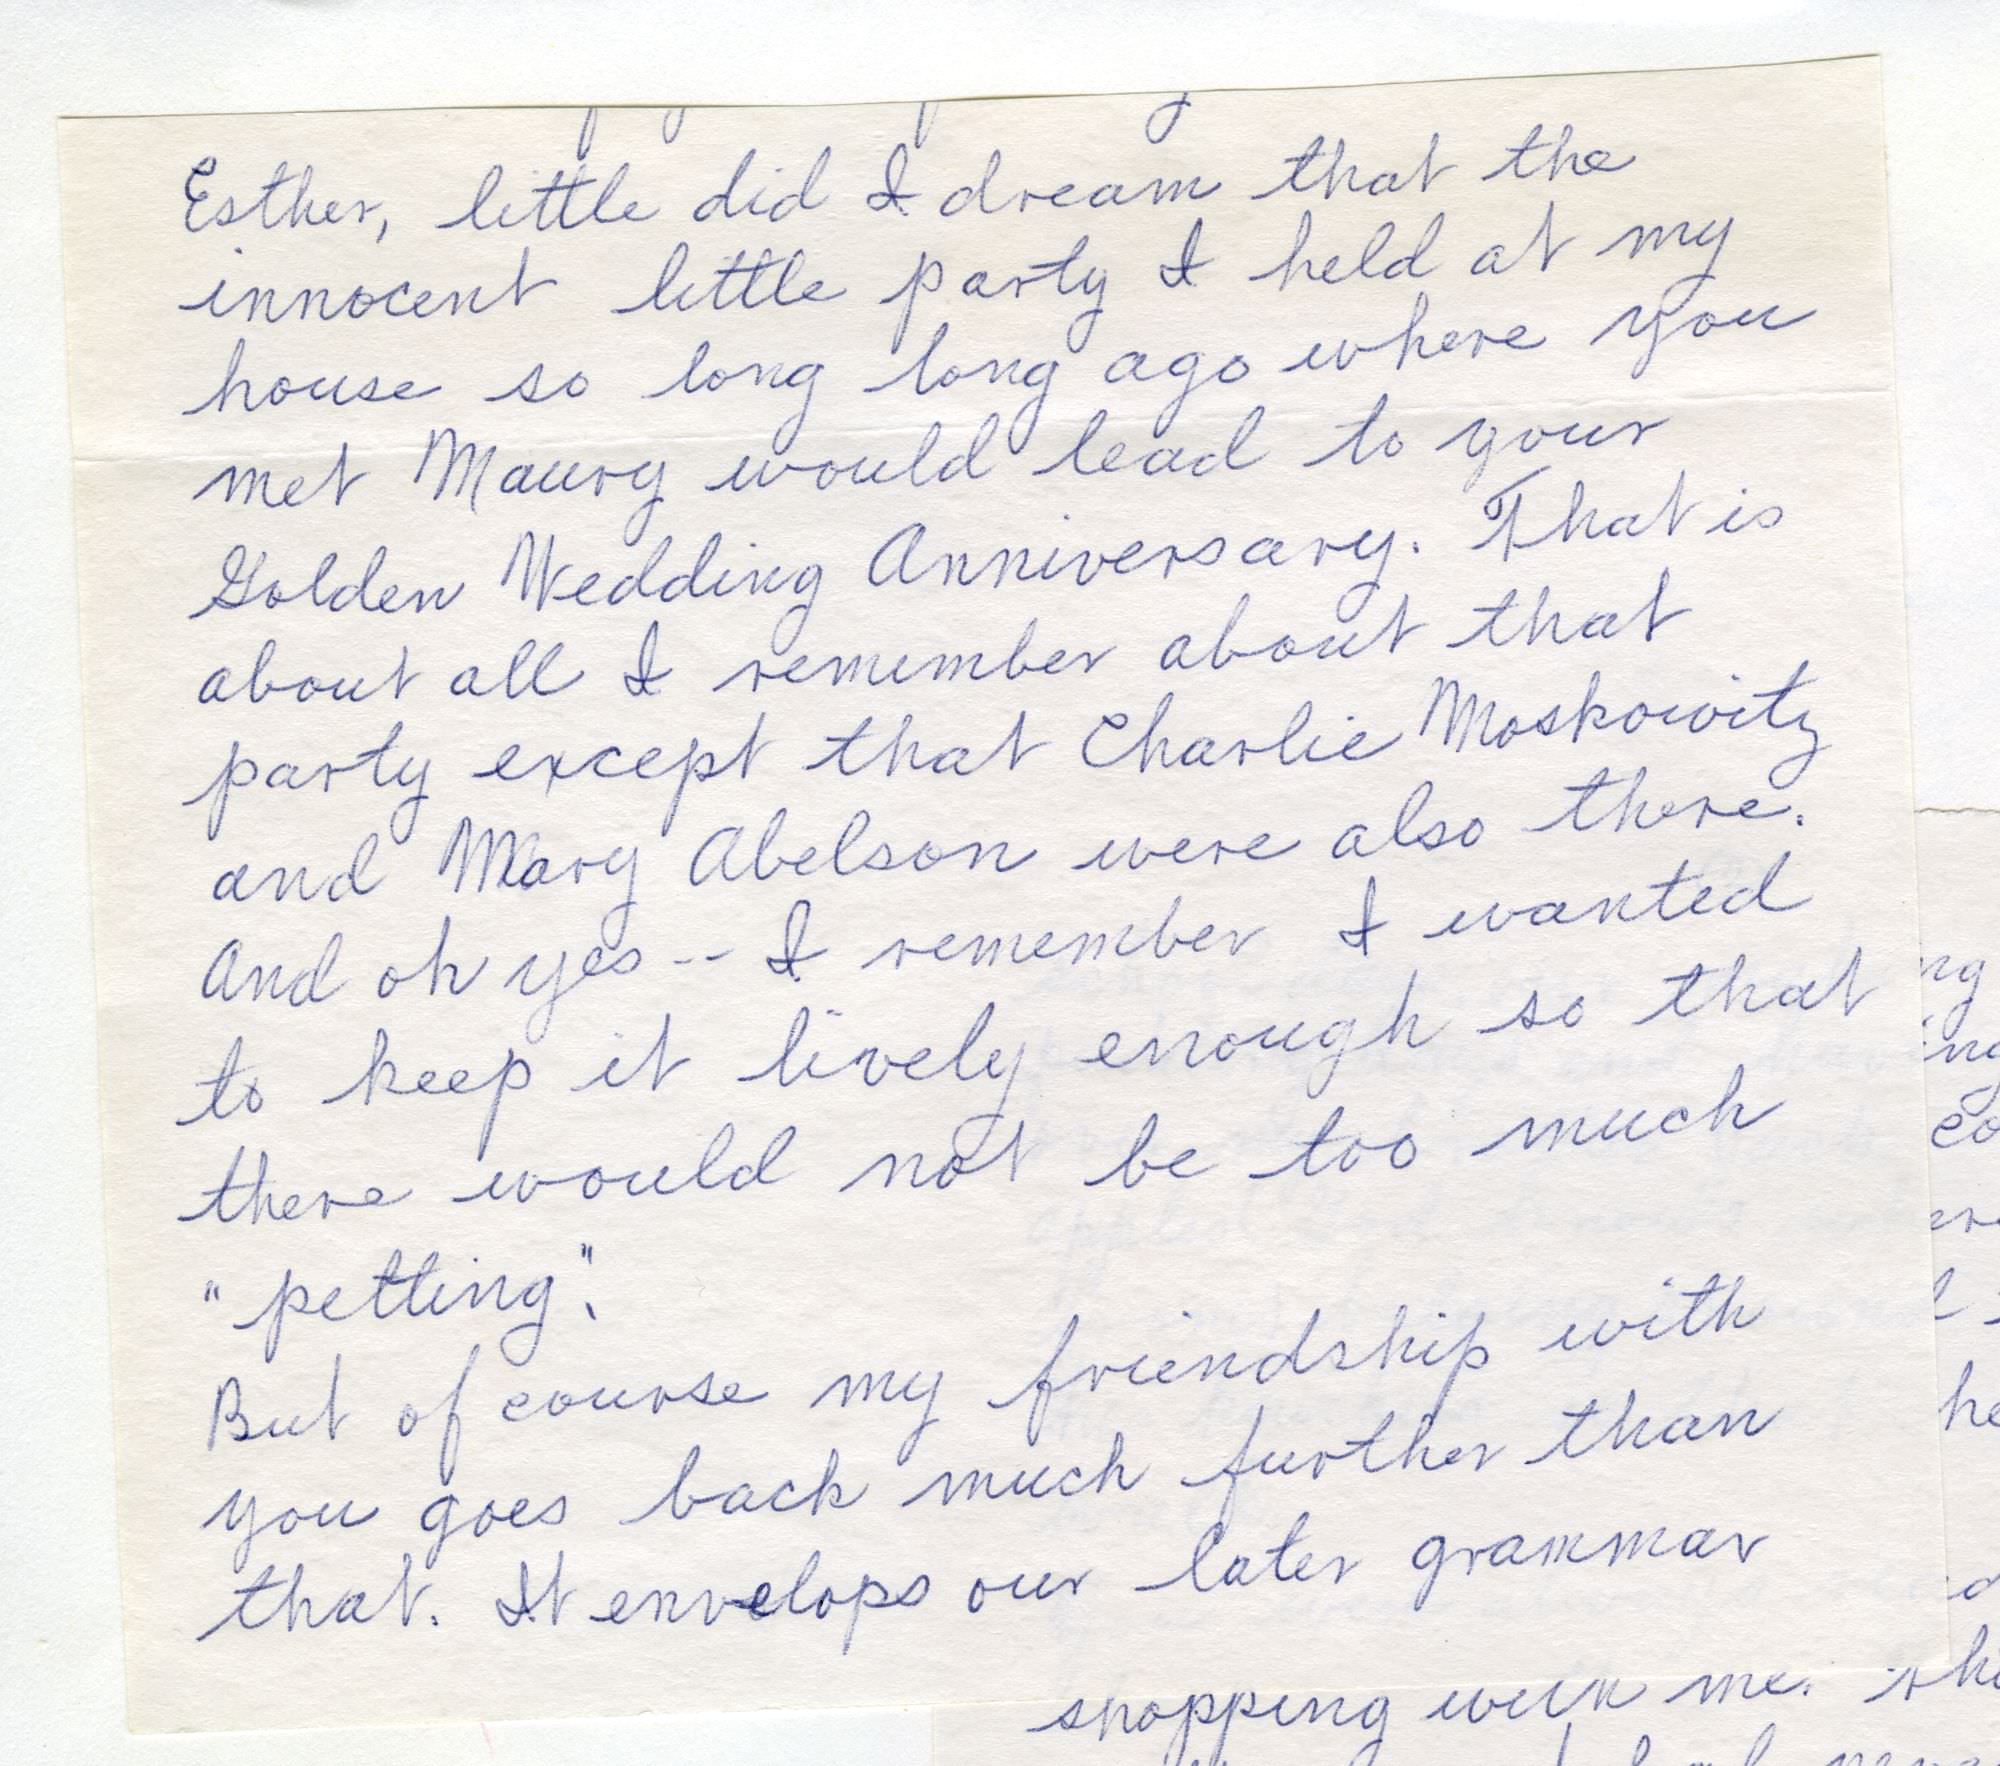 Esther, little did I dream that the
innocent little party I held at my
house so long long ago where you
met Maury would lead to your
Golden Wedding Anniversary. That is
about all I remember about that
party except that Charlie Moskowitz
and Mary Abelson were also there.
And oh yes -- I remember I wanted
to keep it lively enough so that
there would not be too much
"petting".
But of course my friendship with
you goes back much further than
that. It envelops our later grammar
shopping with me.